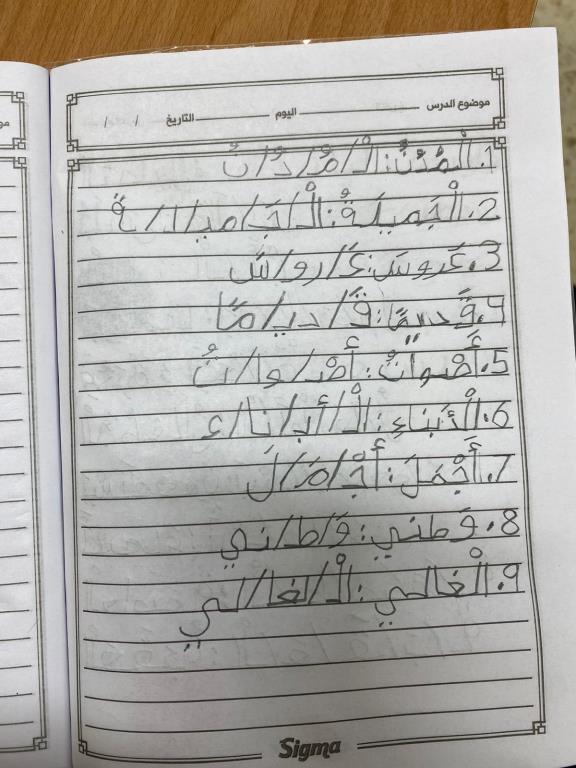 موضوع الدرس اليوم التاريخ / /
1. الْمُدُنُ: الْـ/مُـ/دُ/نُ
2. الْجَميلَةُ: الْـ/جَـ/ميـ/لـ/ـةُ
3. عَروسَ: عَـ/رو/سَ
4. قَديمًا: قَـ/ديـ/مًا
5. أَصْواتُ: أَصْـ/وا/تُ
6. الْأَبناءِ: الْـ/أَبـ/نا/ء
7. أَجْمَلَ: أَجْـ/مَـ/لَ
8. وَطني: وَ/طـ/ني
9. الْغالي: الْـ/غا/لي
Sigma